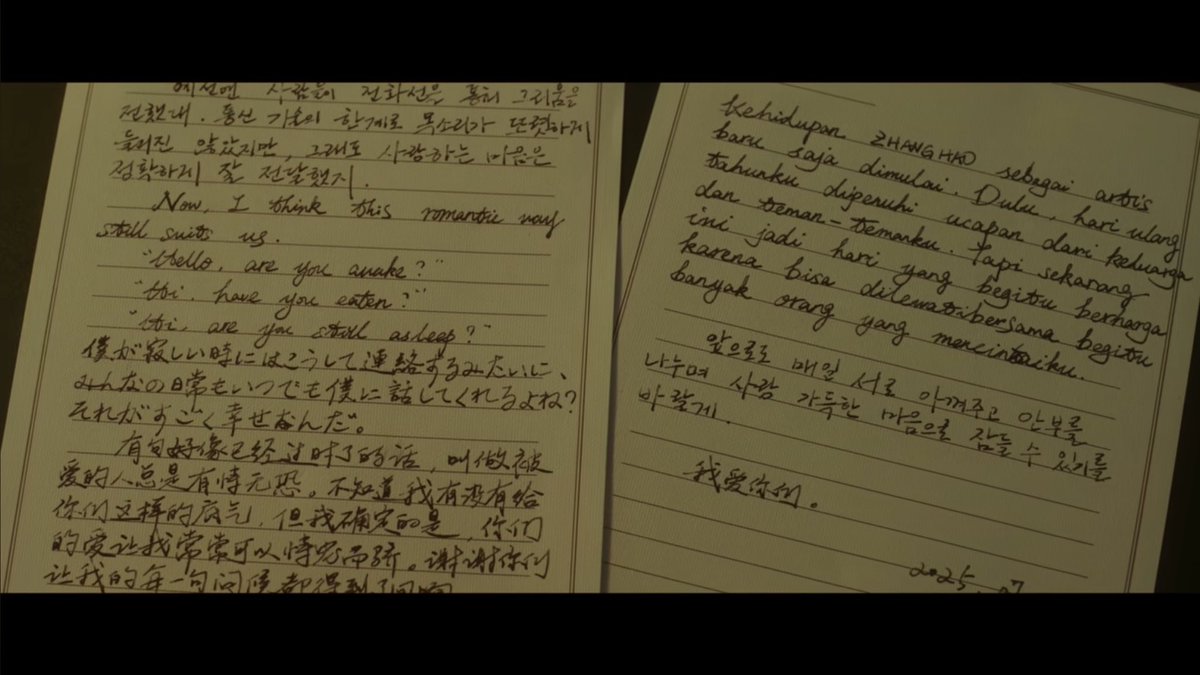 예전엔 사람들이 전화선을 통해 그리움을
전했대. 통신 기술의 한계로 목소리가 또렷하게
들리진 않았지만, 그래도 사랑하는 마음은
정확하게 잘 전달했지.
Now, I think this romantic way
still suits us.
"Hello, are you awake?"
"Hi, have you eaten?"
"Hi, are you still asleep?"
僕が寂しい時にはこうして連絡するみたいに、
みんなの日常もいつでも僕に話してくれるよね?
それがすごく幸せなんだ。
有句好像已经过时了的话，叫做被
爱的人总是有恃无恐。不知道我有没有给
你们这样的底气，但我确定的是，你们
的爱让我常常可以恃宠而骄。谢谢你们
让我的每一句问候都得到了回响
Kehidupan ZHANGHAO sebagai artis
baru saja dimulai. Dulu, hari ulang
tahunku dipenuhi ucapan dari keluarga
dan teman-temanku. Tapi sekarang
ini jadi hari yang begitu berharga
karena bisa dilewati bersama begitu
banyak orang yang mencintaiku.
앞으로도 매일 서로 아껴주고 안부를
나누며 사랑 가득한 마음으로 잠들 수 있기를
바랄게.
我爱你们。
2025. 07